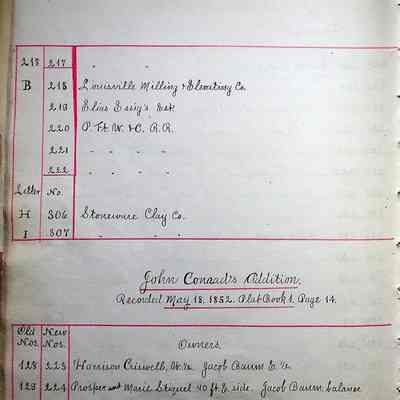 218 217 " "
B 218 Louisville Milling & Elevating Co.
219 Elias Essig's Est.
220 P. Ft. W. & C. R.R.
221 " " " "
222 " " " "
Letter No.
H 306 Stoneware Clay Co.
I 307 " "
John Conrad's Addition.
Recorded May 18, 1852. Plat Book 1. Page 14.
Old New
Nos. Nos. Owners.
128 223 Harrison Criswell, W. ½. Jacob Baum E. ½.
129 224 Prosper and Marie Stiquel 40 ft. E. side. Jacob Baum, balance